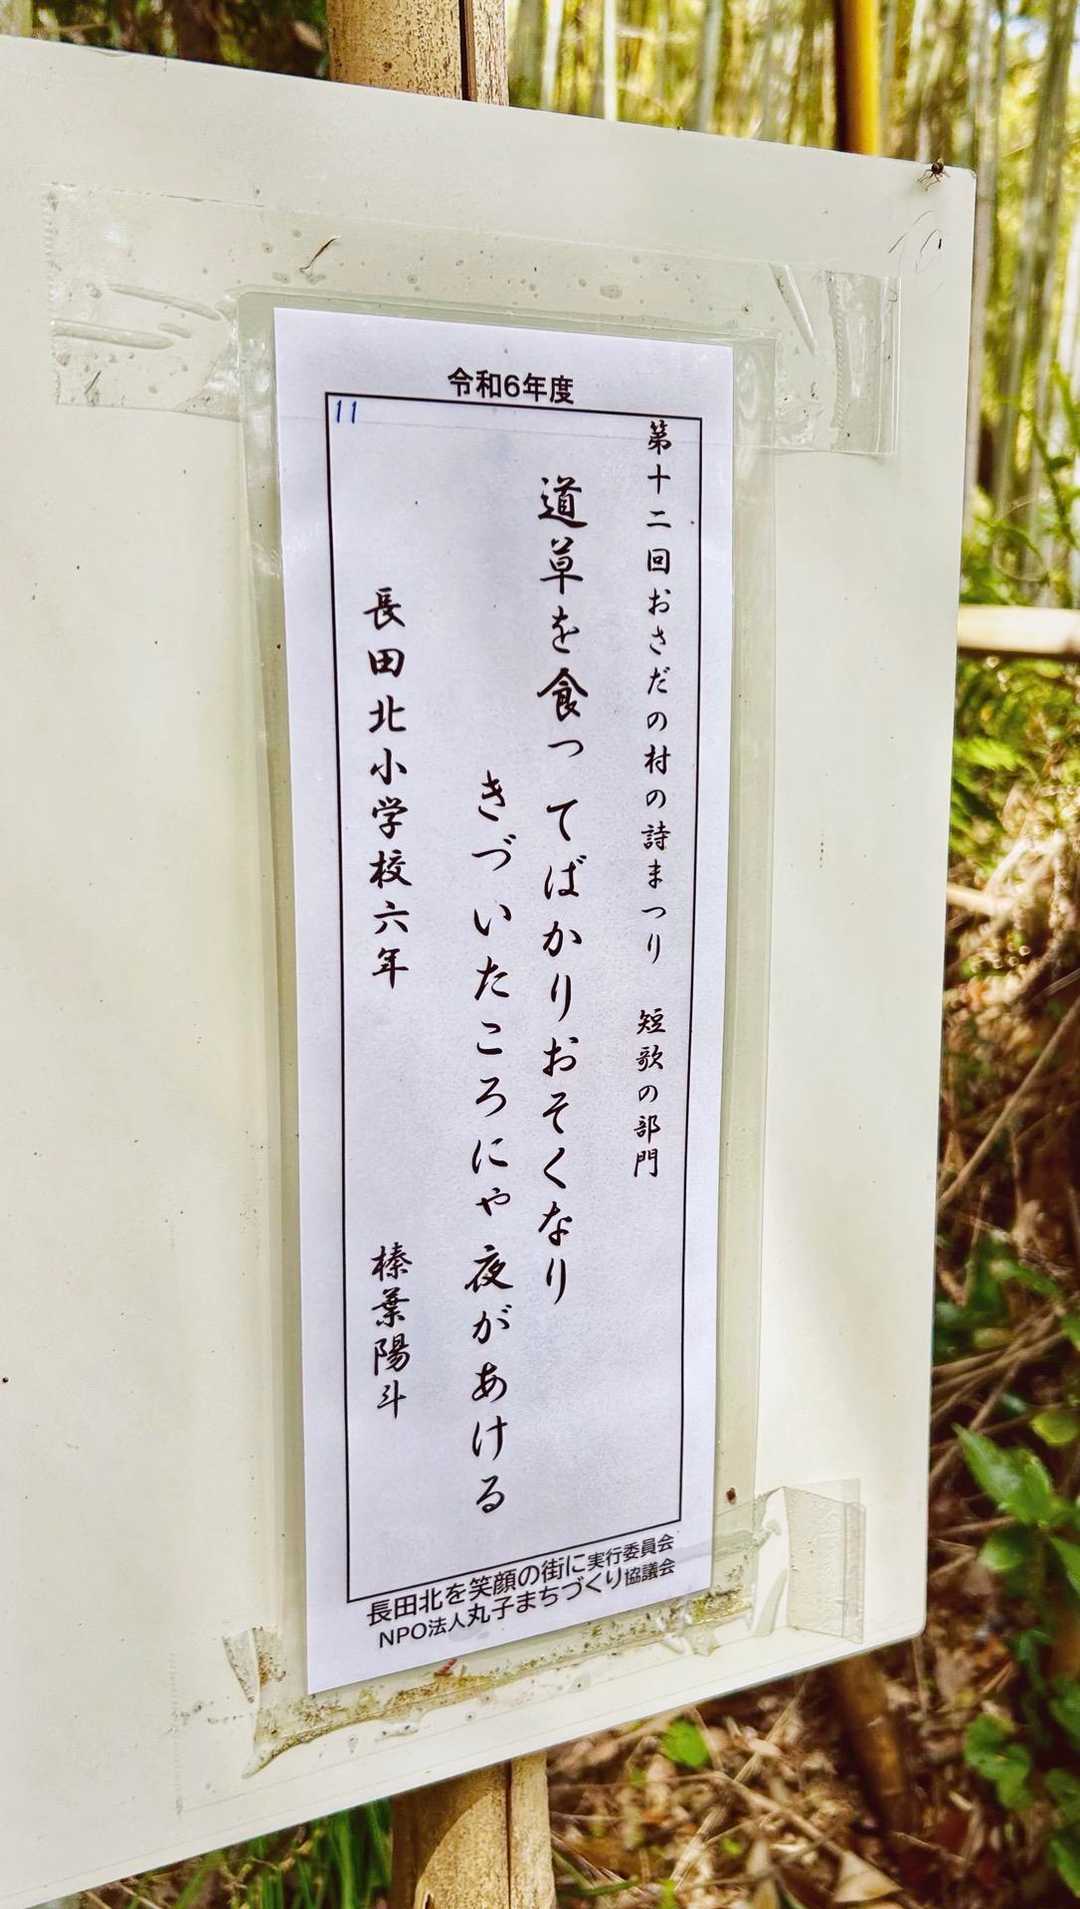 令和6年度
11
第十二回おさだの村の詩まつり 短歌の部門
道草を食ってばかりおそくなり
きづいたころにゃ夜があける
長田北小学校六年 榛葉陽斗
長田北を笑顔の街に実行委員会
NPO法人丸子まちづくり協議会